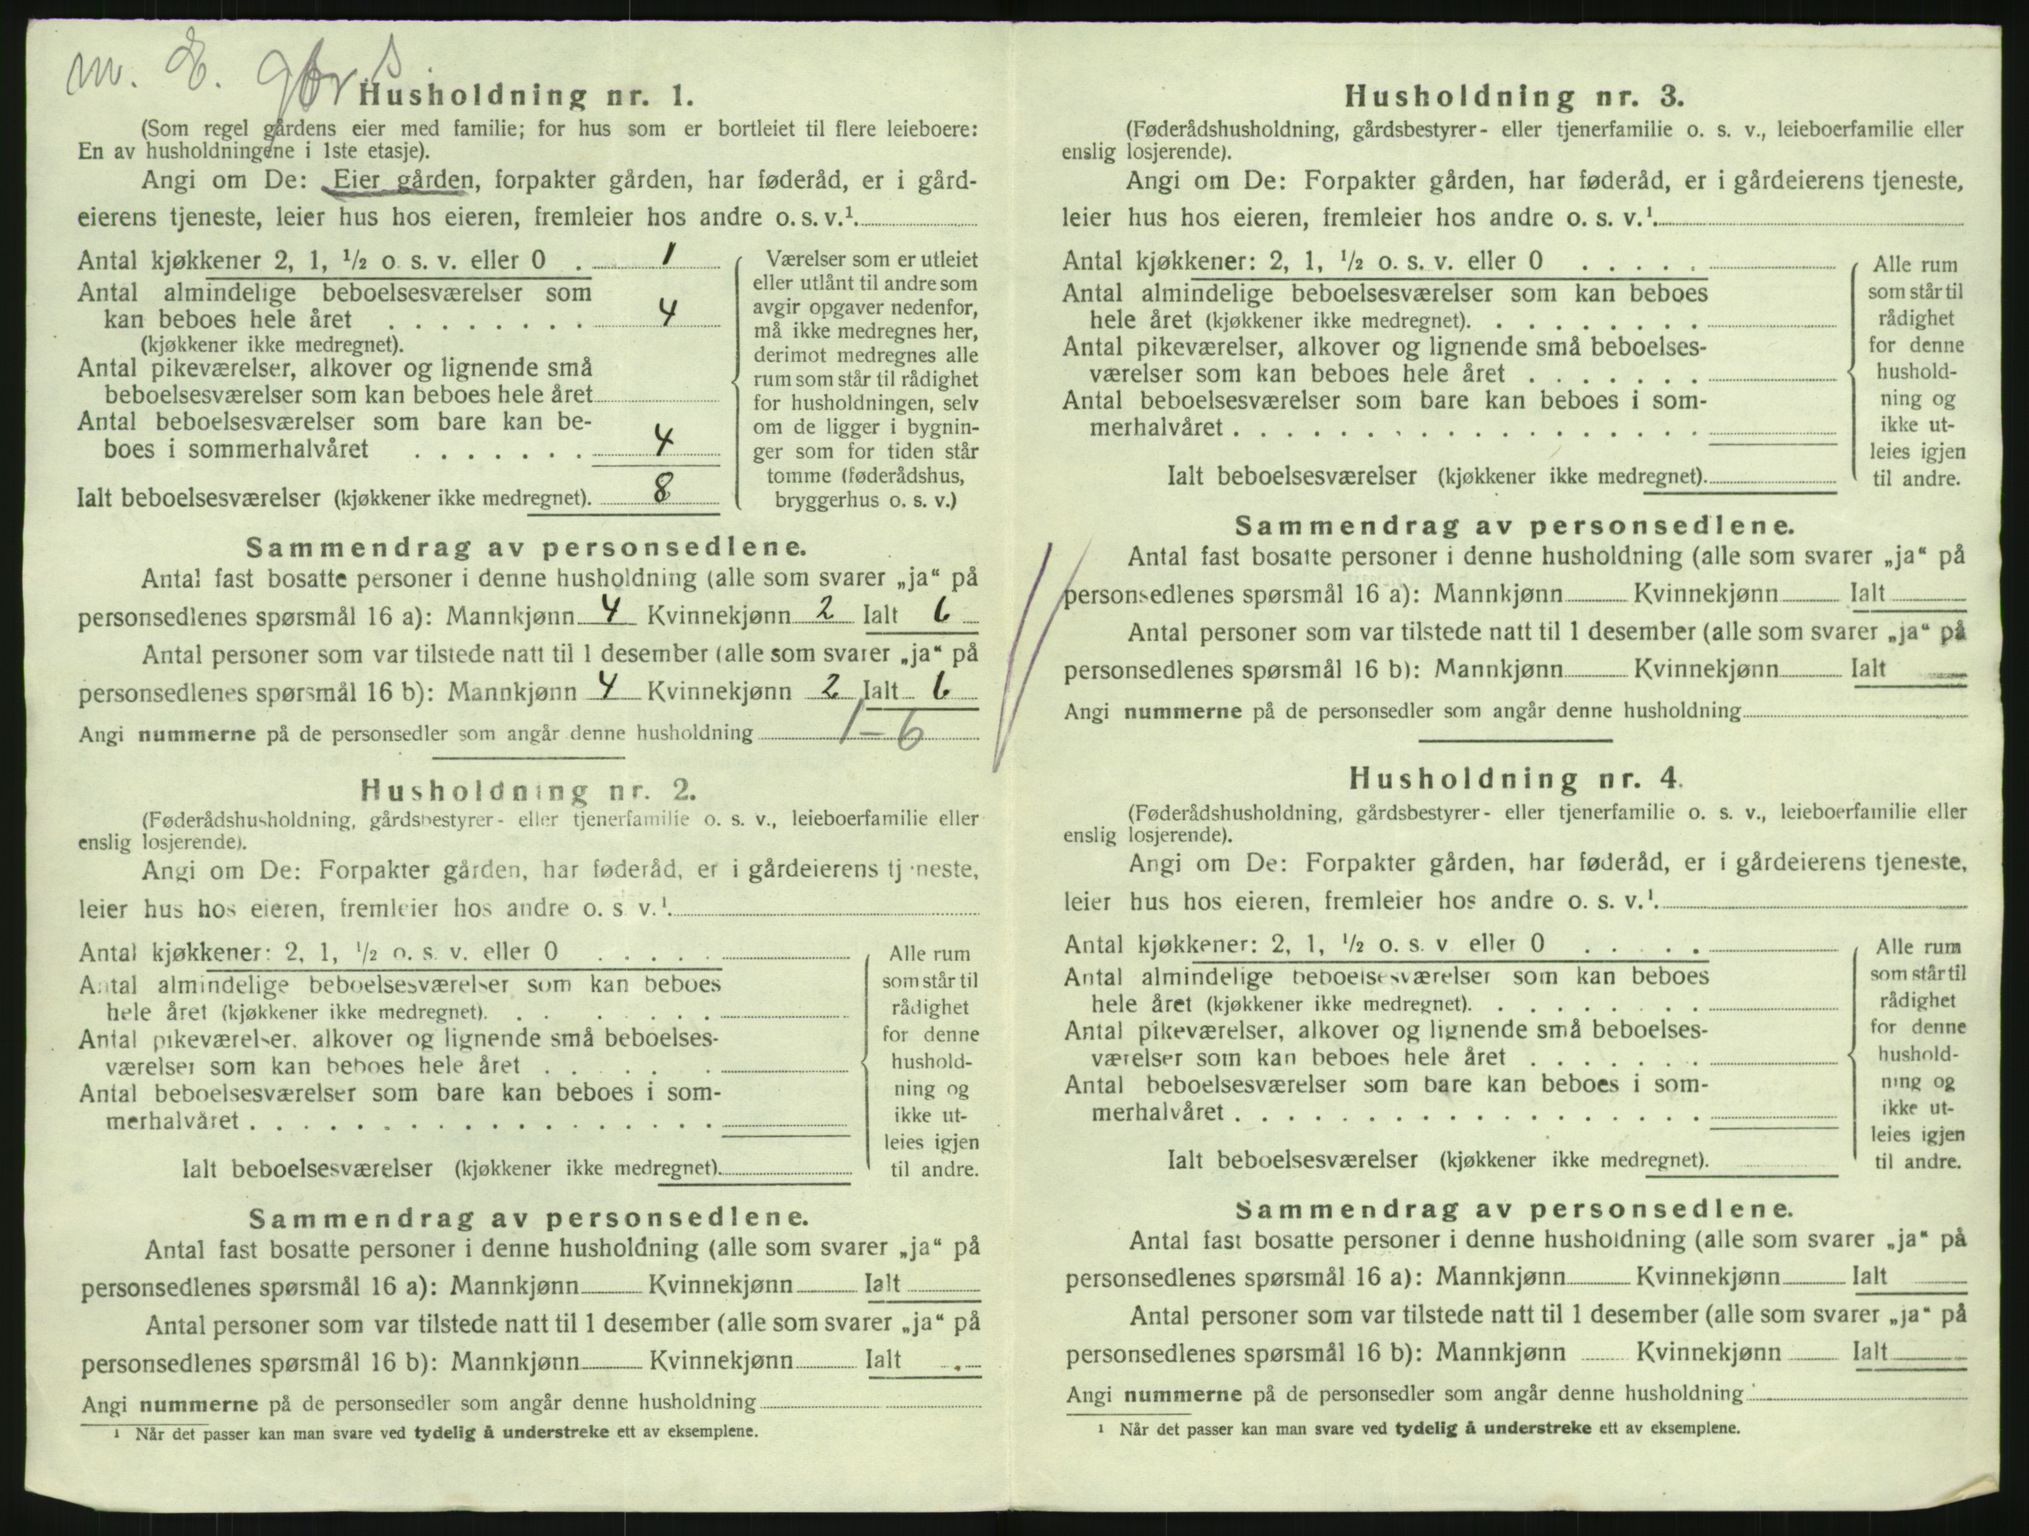 m. E.
Husholdning nr. 1.
(Som regel gårdens eier med familie; for hus som er bortleiet til flere leieboere:
En av husholdningene i 1ste etasje).
Angi om De: Eier gården, forpakter gården, har føderåd, er i gård-
eierens tjeneste, leier hus hos eieren, fremleier hos andre o. s. v.¹
Antal kjøkkener 2, 1, ½ o. s. v. eller 0 . 1
Antal almindelige beboelsesværelser som
kan beboes hele året . . . . . . . . 4
(kjøkkener ikke medregnet).
Antal pikeværelser, alkover og lignende små
beboelsesværelser som kan beboes hele året
Antal beboelsesværelser som bare kan be-
boes i sommerhalvåret . . . . . . . 4
Ialt beboelsesværelser (kjøkkener ikke medregnet). 8
Værelser som er utleiet
eller utlånt til andre som
avgir opgaver nedenfor,
må ikke medregnes her,
derimot medregnes alle
rum som står til rådighet
for husholdningen, selv
om de ligger i bygnin-
ger som for tiden står
tomme (føderådshus,
bryggerhus o. s. v.)
Sammendrag av personsedlene.
Antal fast bosatte personer i denne husholdning (alle som svarer „ja“ på
personsedlenes spørsmål 16 a): Mannkjønn 4 Kvinnekjønn 2 Ialt 6
Antal personer som var tilstede natt til 1 desember (alle som svarer „ja“ på
personsedlenes spørsmål 16 b): Mannkjønn 4 Kvinnekjønn 2 Ialt 6
Angi nummerne på de personsedler som angår denne husholdning 1-6
Husholdning nr. 2.
(Føderådshusholdning, gårdsbestyrer- eller tjenerfamilie o. s. v., leieboerfamilie eller
enslig losjerende).
Angi om De: Forpakter gården, har føderåd, er i gårdeierens tj neste,
leier hus hos eieren, fremleier hos andre o. s. v.¹
Antal kjøkkener: 2, 1, ½ o. s. v. eller 0 . . . . .
Antal almindelige beboelsesværelser som kan beboes
hele året (kjøkkener ikke medregnet). . . . . . . .
Antal pikeværelser, alkover og lignende små beboelses-
værelser som kan beboes hele året . . . . . . .
Antal beboelsesværelser som bare kan beboes i som-
merhalvåret . . . . . . . . . . . . . . . . . .
Ialt beboelsesværelser (kjøkkener ikke medregnet).
Alle rum
som står til
rådighet
for denne
hushold-
ning og
ikke ut-
leies igjen
til andre.
Sammendrag av personsedlene.
Antal fast bosatte personer i denne husholdning (alle som svarer „ja“ på
personsedlenes spørsmål 16 a): Mannkjønn Kvinnekjønn Ialt
Antal personer som var tilstede natt til 1 desember (alle som svarer „ja“ på
personsedlenes spørsmål 16 b): Mannkjønn Kvinnekjønn Ialt
Angi nummerne på de personsedler som angår denne husholdning
¹ Når det passer kan man svare ved tydelig å understreke ett av eksemplene.
Husholdning nr. 3.
(Føderådshusholdning, gårdsbestyrer- eller tjenerfamilie o. s. v., leieboerfamilie eller
enslig losjerende).
Angi om De: Forpakter gården, har føderåd, er i gårdeierens tjeneste,
leier hus hos eieren, fremleier hos andre o. s. v.¹
Antal kjøkkener: 2, 1, ½ o. s. v. eller 0 . . . . .
Antal almindelige beboelsesværelser som kan beboes
hele året (kjøkkener ikke medregnet). . . . . . . .
Antal pikeværelser, alkover og lignende små beboelses-
værelser som kan beboes hele året . . . . . . .
Antal beboelsesværelser som bare kan beboes i som-
merhalvåret . . . . . . . . . . . . . . . . . .
Ialt beboelsesværelser (kjøkkener ikke medregnet).
Alle rum
som står til
rådighet
for denne
hushold-
ning og
ikke ut-
leies igjen
til andre.
Sammendrag av personsedlene.
Antal fast bosatte personer i denne husholdning (alle som svarer „ja“ på
personsedlenes spørsmål 16 a): Mannkjønn Kvinnekjønn Ialt
Antal personer som var tilstede natt til 1 desember (alle som svarer „ja“ på
personsedlenes spørsmål 16 b): Mannkjønn Kvinnekjønn Ialt
Angi nummerne på de personsedler som angår denne husholdning
Husholdning nr. 4.
(Føderådshusholdning, gårdsbestyrer- eller tjenerfamilie o. s. v., leieboerfamilie eller
enslig losjerende).
Angi om De: Forpakter gården, har føderåd, er i gårdeierens tjeneste,
leier hus hos eieren, fremleier hos andre o. s. v.¹
Antal kjøkkener: 2, 1, ½ o. s. v eller 0 . . . . .
Antal almindelige beboelsesværelser som kan beboes
hele året (kjøkkener ikke medregnet). . . . . . . .
Antal pikeværelser, alkover og lignende små beboelses-
værelser som kan beboes hele året . . . . . . .
Antal beboelsesværelser som bare kan beboes i som-
merhalvåret . . . . . . . . . . . . . . . . . .
Ialt beboelsesværelser (kjøkkener ikke medregnet).
Alle rum
som står til
rådighet
for denne
hushold-
ning og
ikke ut-
leies igjen
til andre.
Sammendrag av personsedlene.
Antal fast bosatte personer i denne husholdning (alle som svarer „ja“ på
personsedlenes spørsmål 16 a): Mannkjønn Kvinnekjønn Ialt
Antal personer som var tilstede natt til 1 desember (alle som svarer „ja“ på
personsedlenes spørsmål 16 b): Mannkjønn Kvinnekjønn Ialt
Angi nummerne på de personsedler som angår denne husholdning
¹ Når det passer kan man svare ved tydelig å understreke ett av eksemplene.